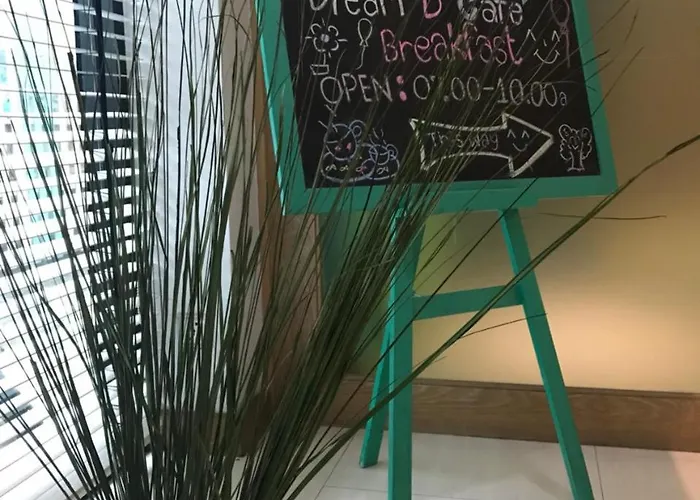 Dream D Café
Breakfast
OPEN: 07.00-10.00a
This way